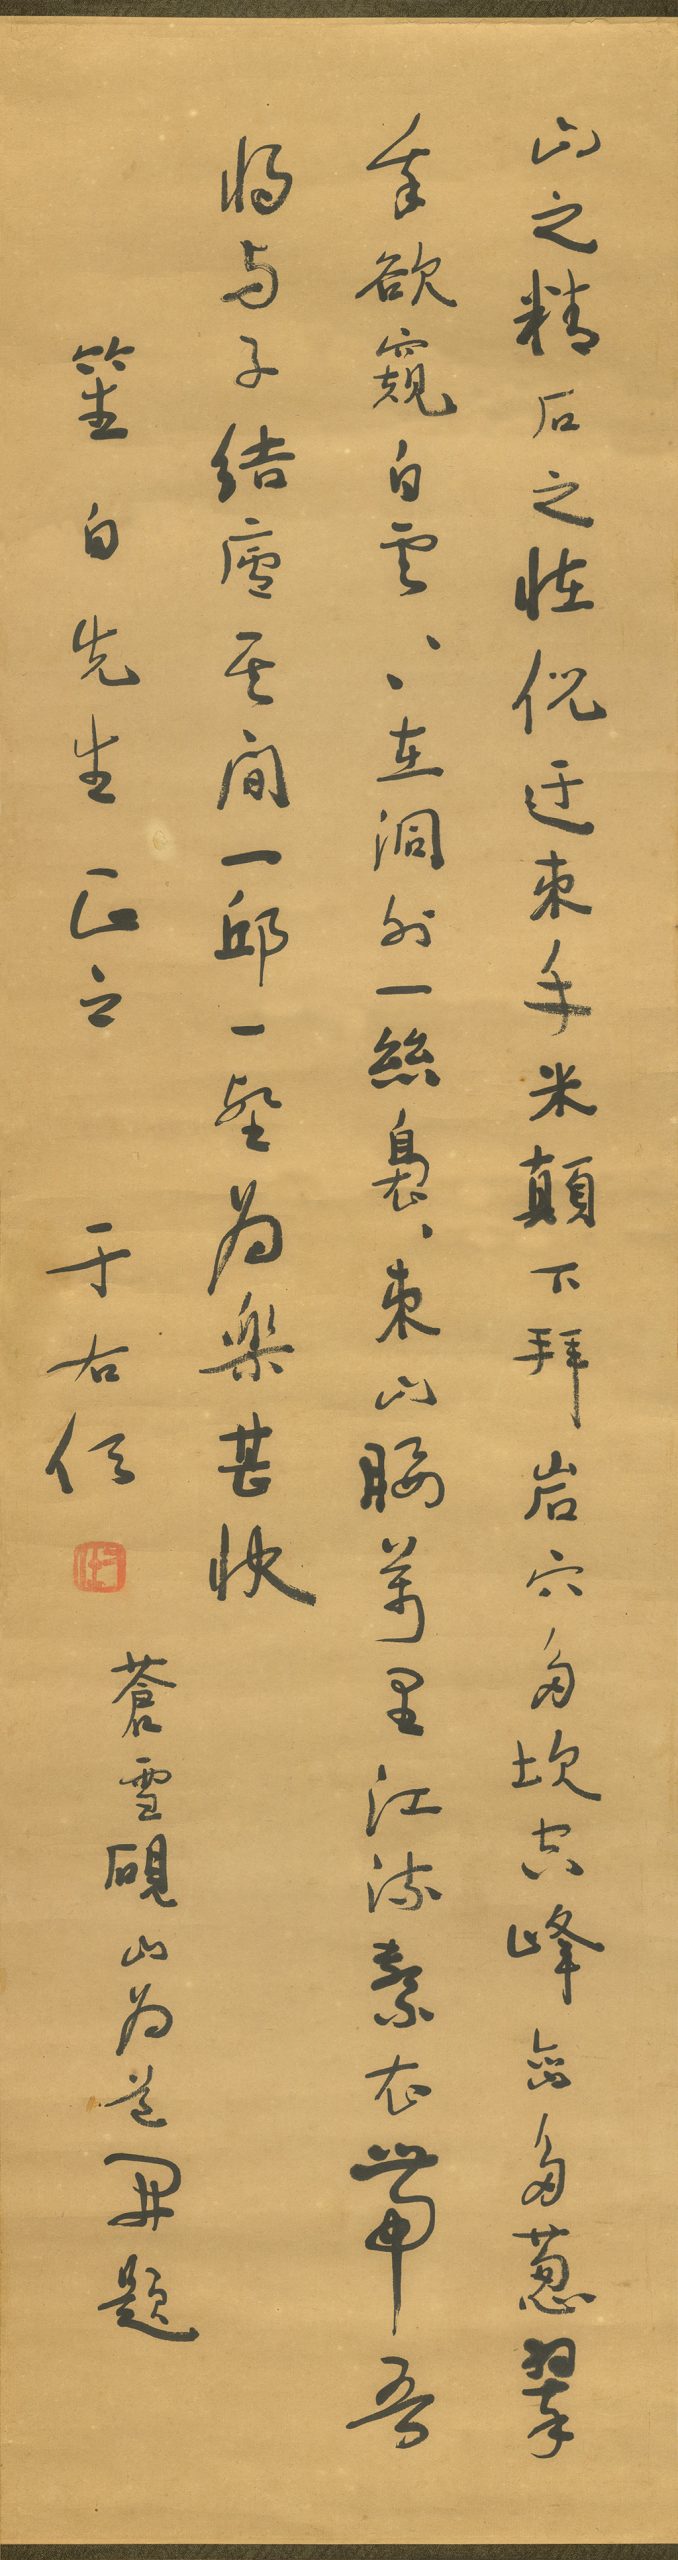 山之精石之怪倪迂束手米顛下拜岩穴多坎空峰巒多蔥翠
手欲窺白雲〻在洞外一絲裊〻束山腰萬里江流素衣帶吾
將与子結廬其間一邱一壑為樂甚快
笙白先生正之 于右任
蒼雪硯山為道開題